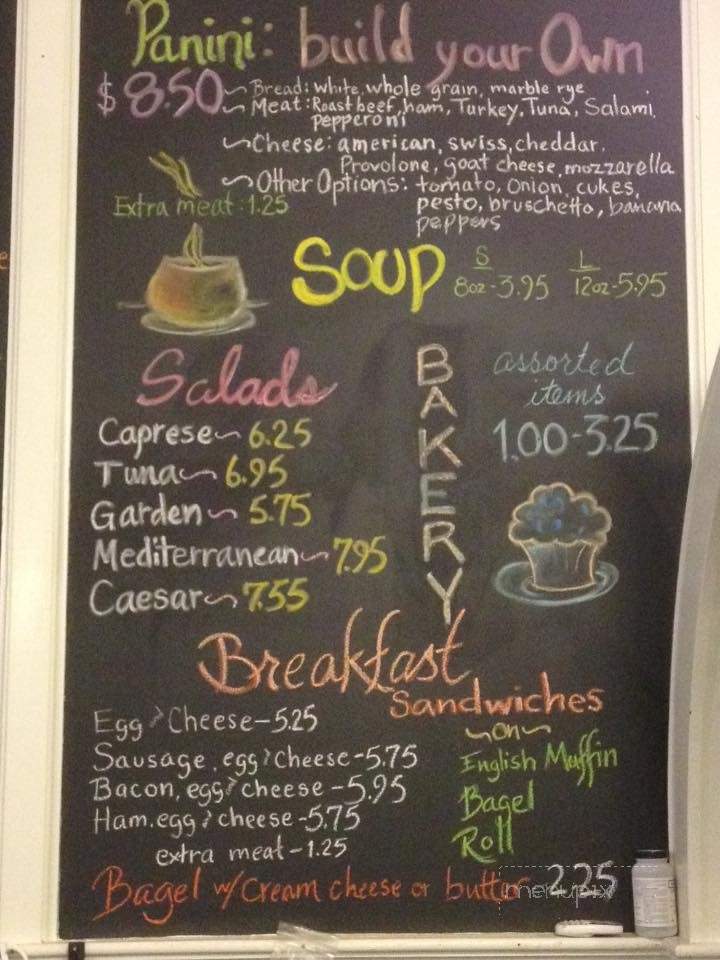 Panini: build your Own
$8.50 ~ Bread: White, whole grain, marble rye
~ Meat: Roast beef, ham, Turkey, Tuna, Salami,
pepperoni
~ Cheese: american, swiss, cheddar,
Provolone, goat cheese, mozzarella
~ Other Options: tomato, onion, cukes,
Extra meat: 1.25
pesto, bruschetta, banana
peppers
Soup
S
8oz-3.95
L
12oz-5.95
Salads
Caprese~ 6.25
Tuna~ 6.95
Garden~ 5.75
Mediterranean~ 7.95
Caesar~ 7.55
BAKERY
assorted
items
1.00-3.25
Breakfast
Sandwiches
~on~
English Muffin
Bagel
Roll
Egg & Cheese-5.25
Sausage, egg & cheese-5.75
Bacon, egg & cheese-5.95
Ham, egg & cheese-5.75
extra meat-1.25
Bagel w/Cream cheese or butter 2.25
menupix